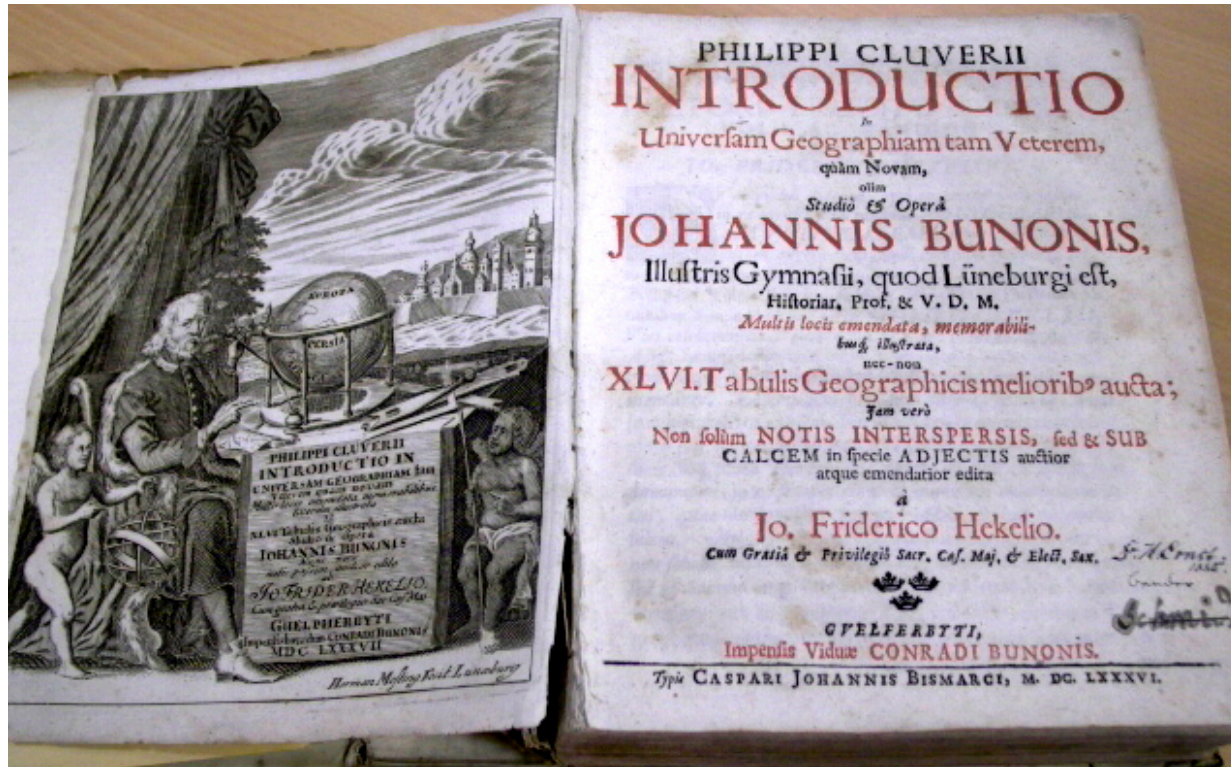 EUROPA
PERSIA
PHILIPPI CLUVERII
INTRODUCTIO IN
UNIVERSAM GEOGRAPHIAM tam
XLVI Tabulis Geographicis aucta
Studio & Opera
JOHANNIS BUNONIS
JO FRIDER HEKELIO.
GUELPHERBYTI
CONRADI BUNONIS
MDC LXXXVII
Herman Mosting Fecit Luneburg
PHILIPPI CLUVERII
INTRODUCTIO
In
Univerſam Geographiam tam Veterem,
quàm Novam,
olim
Studiô & Operâ
JOHANNIS BUNONIS,
Illuſtris Gymnaſii, quod Lüneburgi eſt,
Hiſtoriar. Prof. & V. D. M.
Multis locis emendata, memorabili-
busq; illuſtrata,
nec-non
XLVI. Tabulis Geographicis meliorib9 aucta;
Jam verò
Non ſolùm NOTIS INTERSPERSIS, ſed & SUB
CALCEM in ſpecie ADJECTIS auctior
atque emendatior edita
à
Jo. Friderico Hekelio.
Cum Gratiâ & Privilegiô Sacr. Cæſ. Maj. & Elect. Sax.
GVELFERBYTI,
Impenſis Viduæ CONRADI BUNONIS.
Typis CASPARI JOHANNIS BISMARCI, M. DC. LXXXVI.